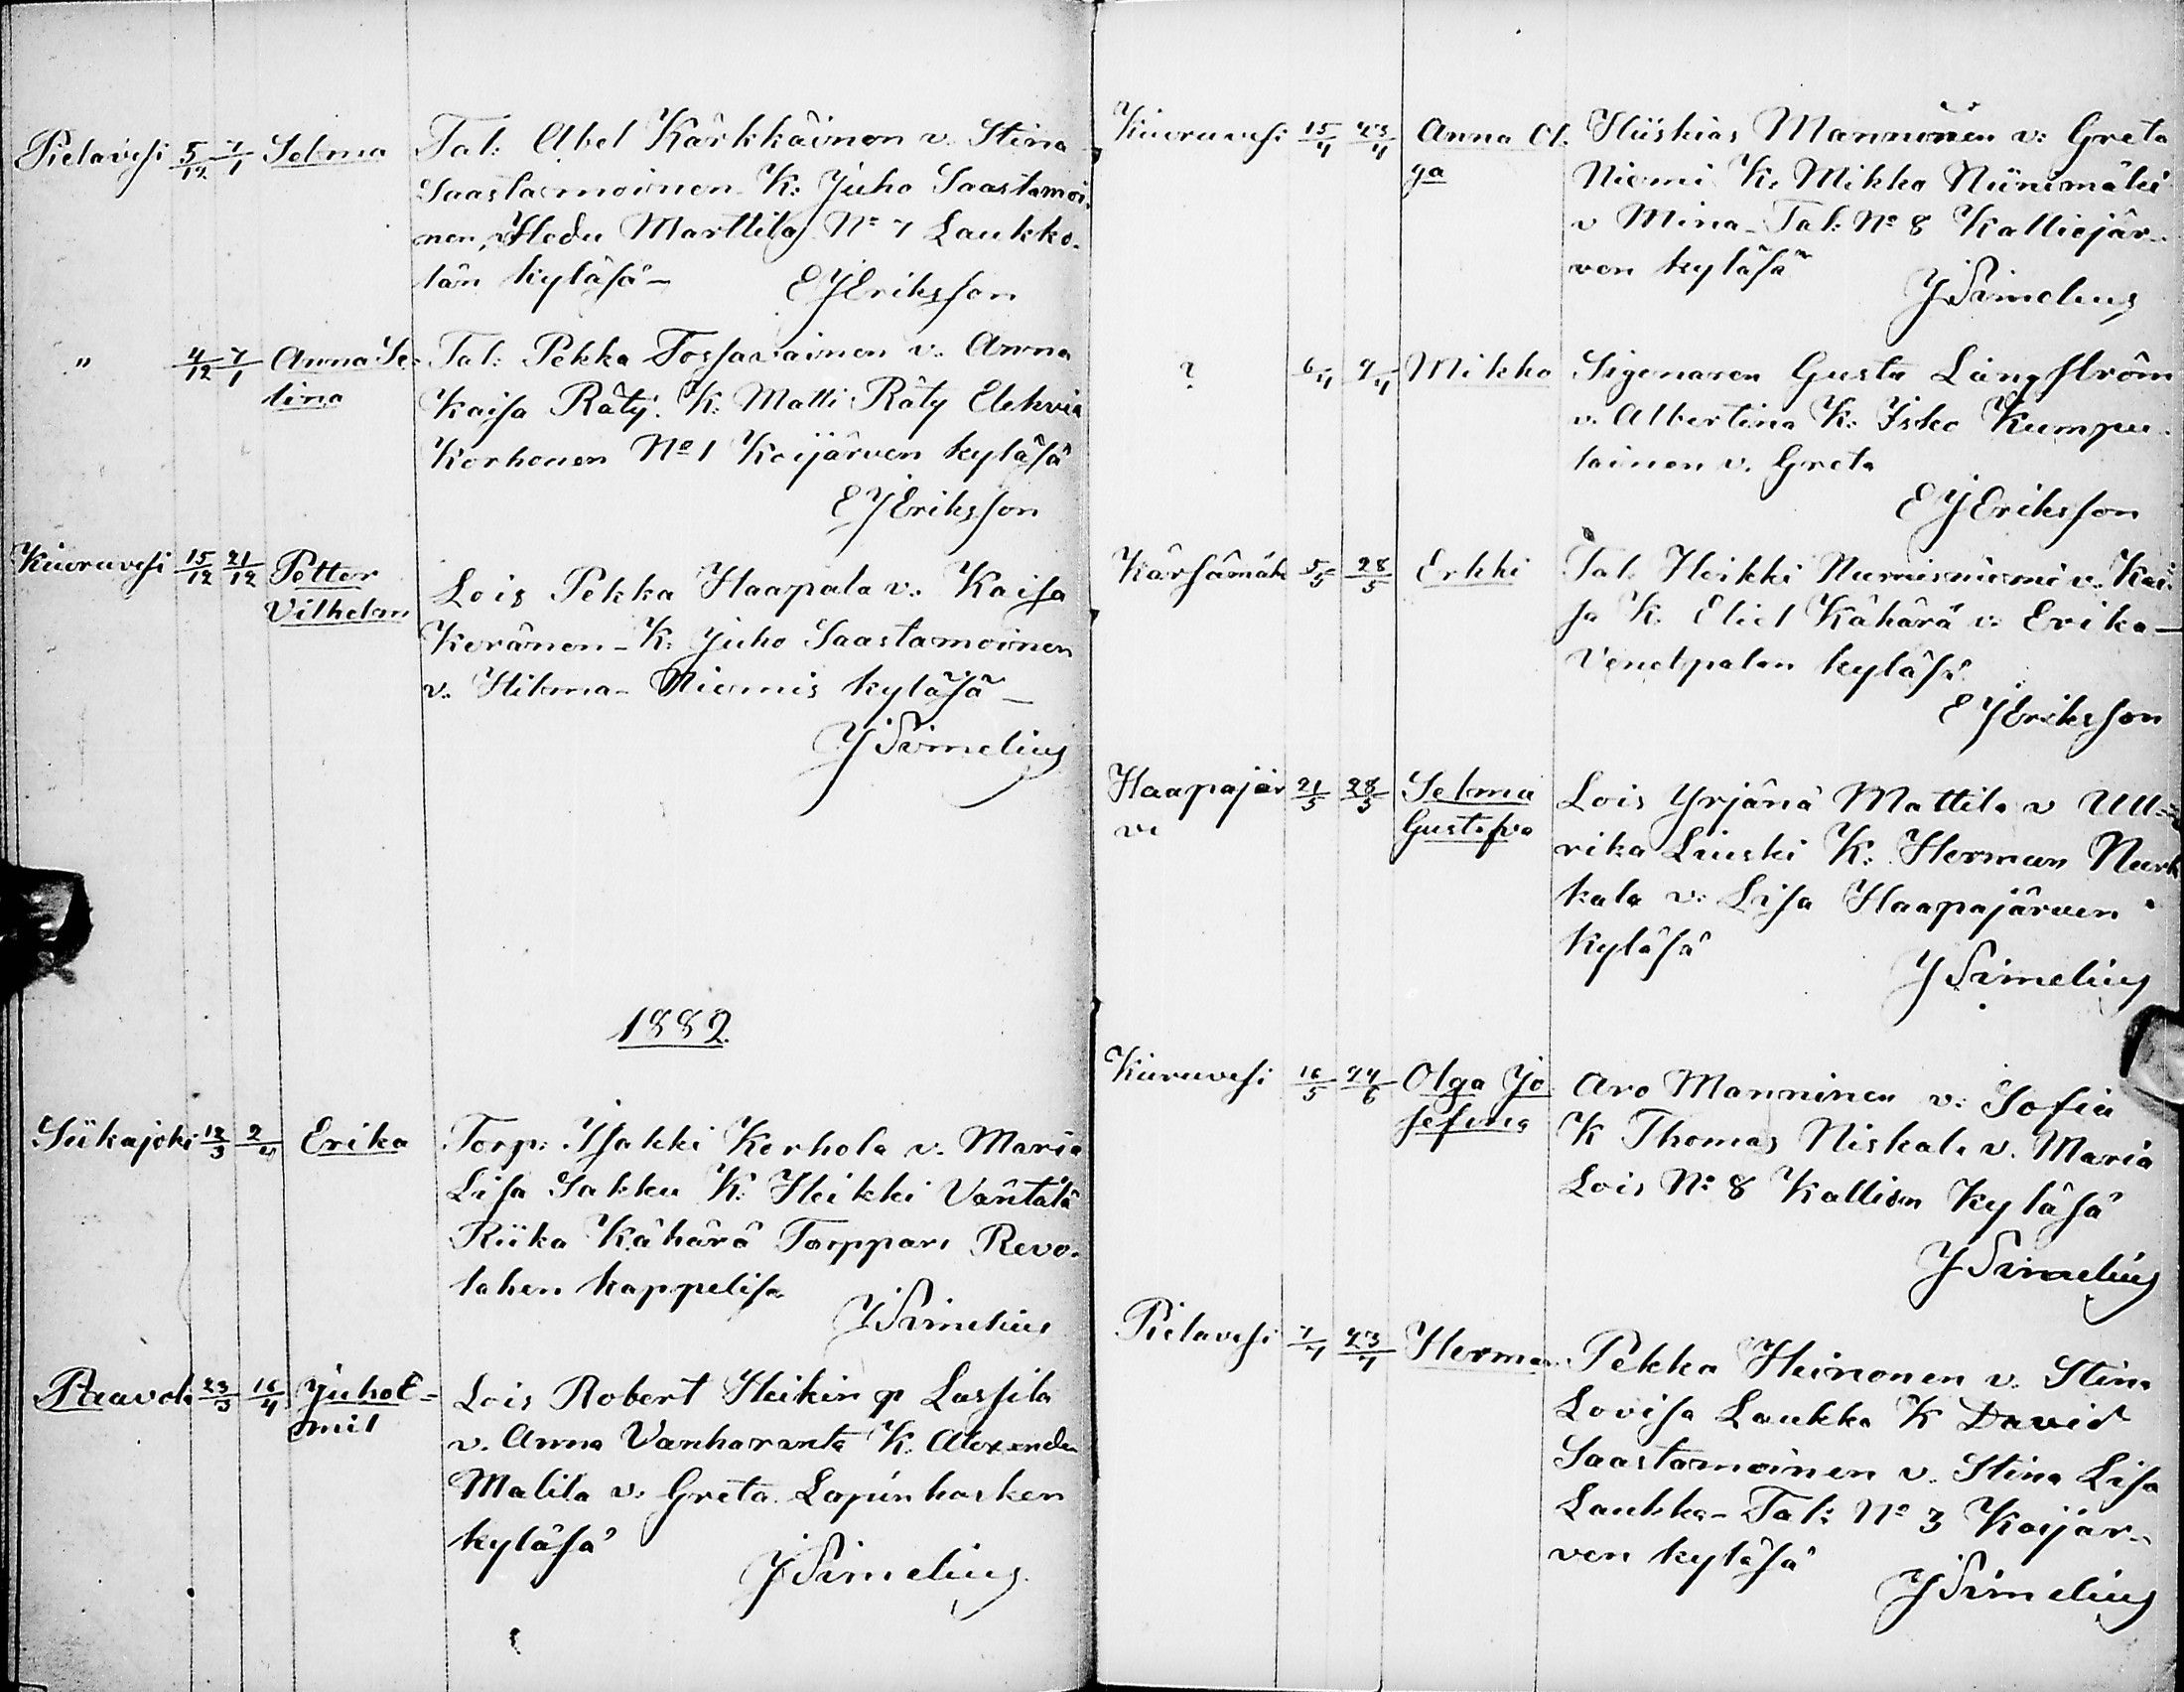 Pielavesi 5/12 7/1 Selma Tal: Abel Kärkkäinen v. Stina
Saastamoinen K: Juho Saastamoi-
nen, Hedu Marttila Nº 7 Laukka-
län kyläsä –
E J Eriksson
" 4/12 7/1 Anna Se- Tal: Pekka Tossavainen v. Anna
lina Kaisa Räty. K. Matti Räty Elekvia
Korhonen Nº 1 Koijärven kyläsä
E J Eriksson
Kiuruvesi 15/12 21/12 Petter
Vilhelm Lois Pekka Haapala v. Kaisa
Keränen – K: Juho Saastamoinen
v. Hilma – Niemis kyläsä –
J Simelius
1882.
Siikajoki 18/3 2/4 Erika Torp: Isakki Korhola v. Maria
Lisa Sakku K: Heikki Väntälä
Riika Kähärä Torppari Revo-
lahen kappelisa
J Simelius
Paavola 23/3 16/4 Juho E- Lois Robert Heikin p Lassila
mil v. Anna Vanharanta K. Alexander
Malila v. Greta Lapinkosken
kyläsä
J Simelius
Kiuruvesi 15/4 23/4 Anna Ol- Hiiskias Manninen v: Greta
ga Niemi K. Mikko Niinimäki
v Mina – Tal: Nº 8 Kalliojär-
ven kyläsä
J Simelius
? 6/4 9/4 Mikko Sigenaren Gusta Långström
v. Albertina K: Isko Kumpu-
lainen v. Greta
E J Eriksson
Kärsämäk 5/5 28/5 Erkki Tal. Heikki Nurmisniemi v. Kai-
sa K. Eliel Kähärä v. Erika –
Venetpalon kyläsä
E J Eriksson
Haapajär 21/5 28/5 Selma Lois Yrjänä Mattila v Ull-
vi Gustafva rika Liuski K: Herman Nurk
kala v: Lisa Haapajärven
kyläsä
J Simelius
Kiuruvesi 16/5 24/6 Olga Jo Aro Manninen v: Sofia
sefina K Thomas Niskala v. Maria
Lois Nº 8 Kallion Kyläsä
J Simelius
Pielavesi 7/4 23/4 Herman Pekka Heinonen v. Stina
Lovisa Laukka K David
Saastamoinen v. Stina Lisa
Laukka – Tal: Nº 3 Koijär-
ven kyläsä
J Simelius